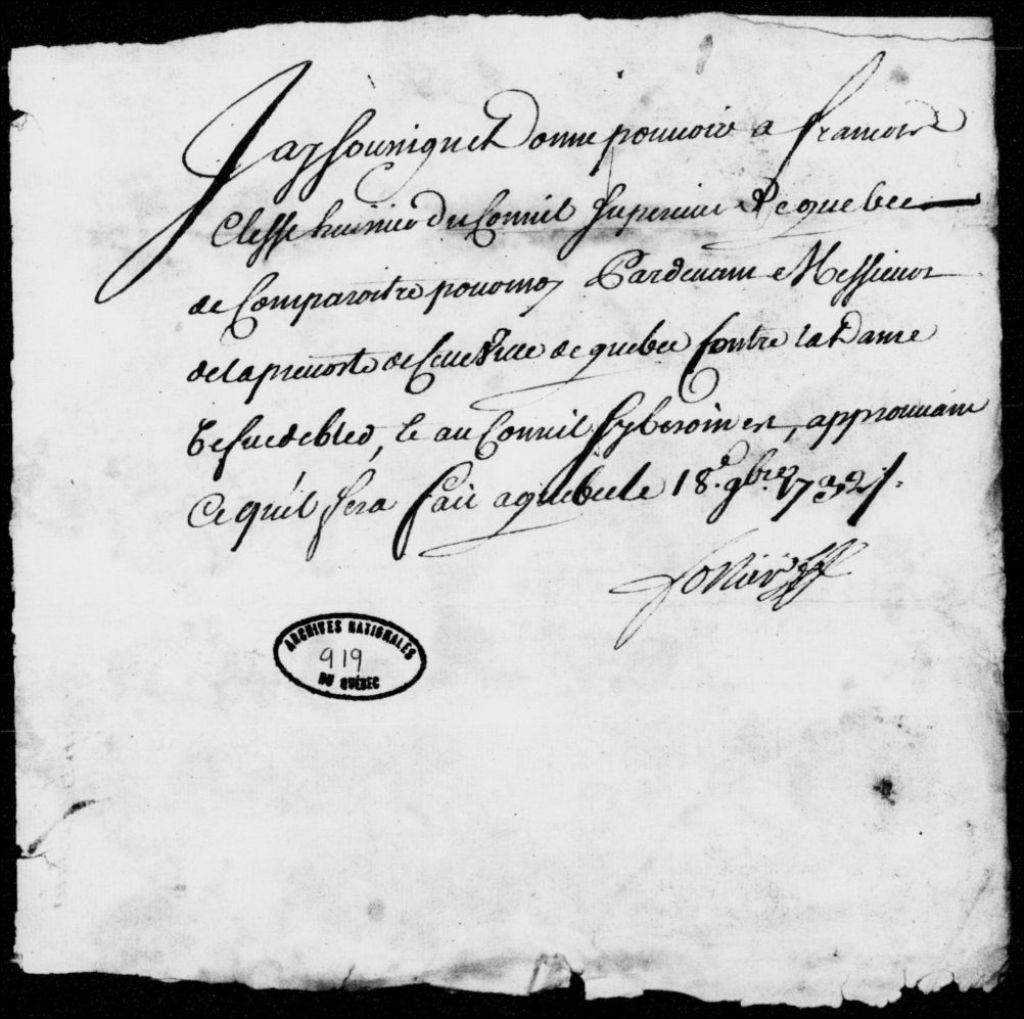 Jay Sousigne Et Donne pouvoir a francois
Clesse huissier du Conseil Superieur De quebec
de Comparoitre pour moy Pardevant Messieurs
de la prevosté de Cette Ville de quebec Contre la Dame
debled, Et au Conseil sy besoin est, approuvant
Ce qu'il sera fait a quebec le 18.e 9bre 1732 /.
ARCHIVES NATIONALES
919
DU QUÉBEC